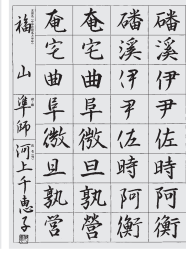 磻溪伊尹佐時阿衡
磻溪伊尹佐時阿衡
奄宅曲阜微旦孰營
奄宅曲阜微旦孰営
福山 準師 河上千恵子